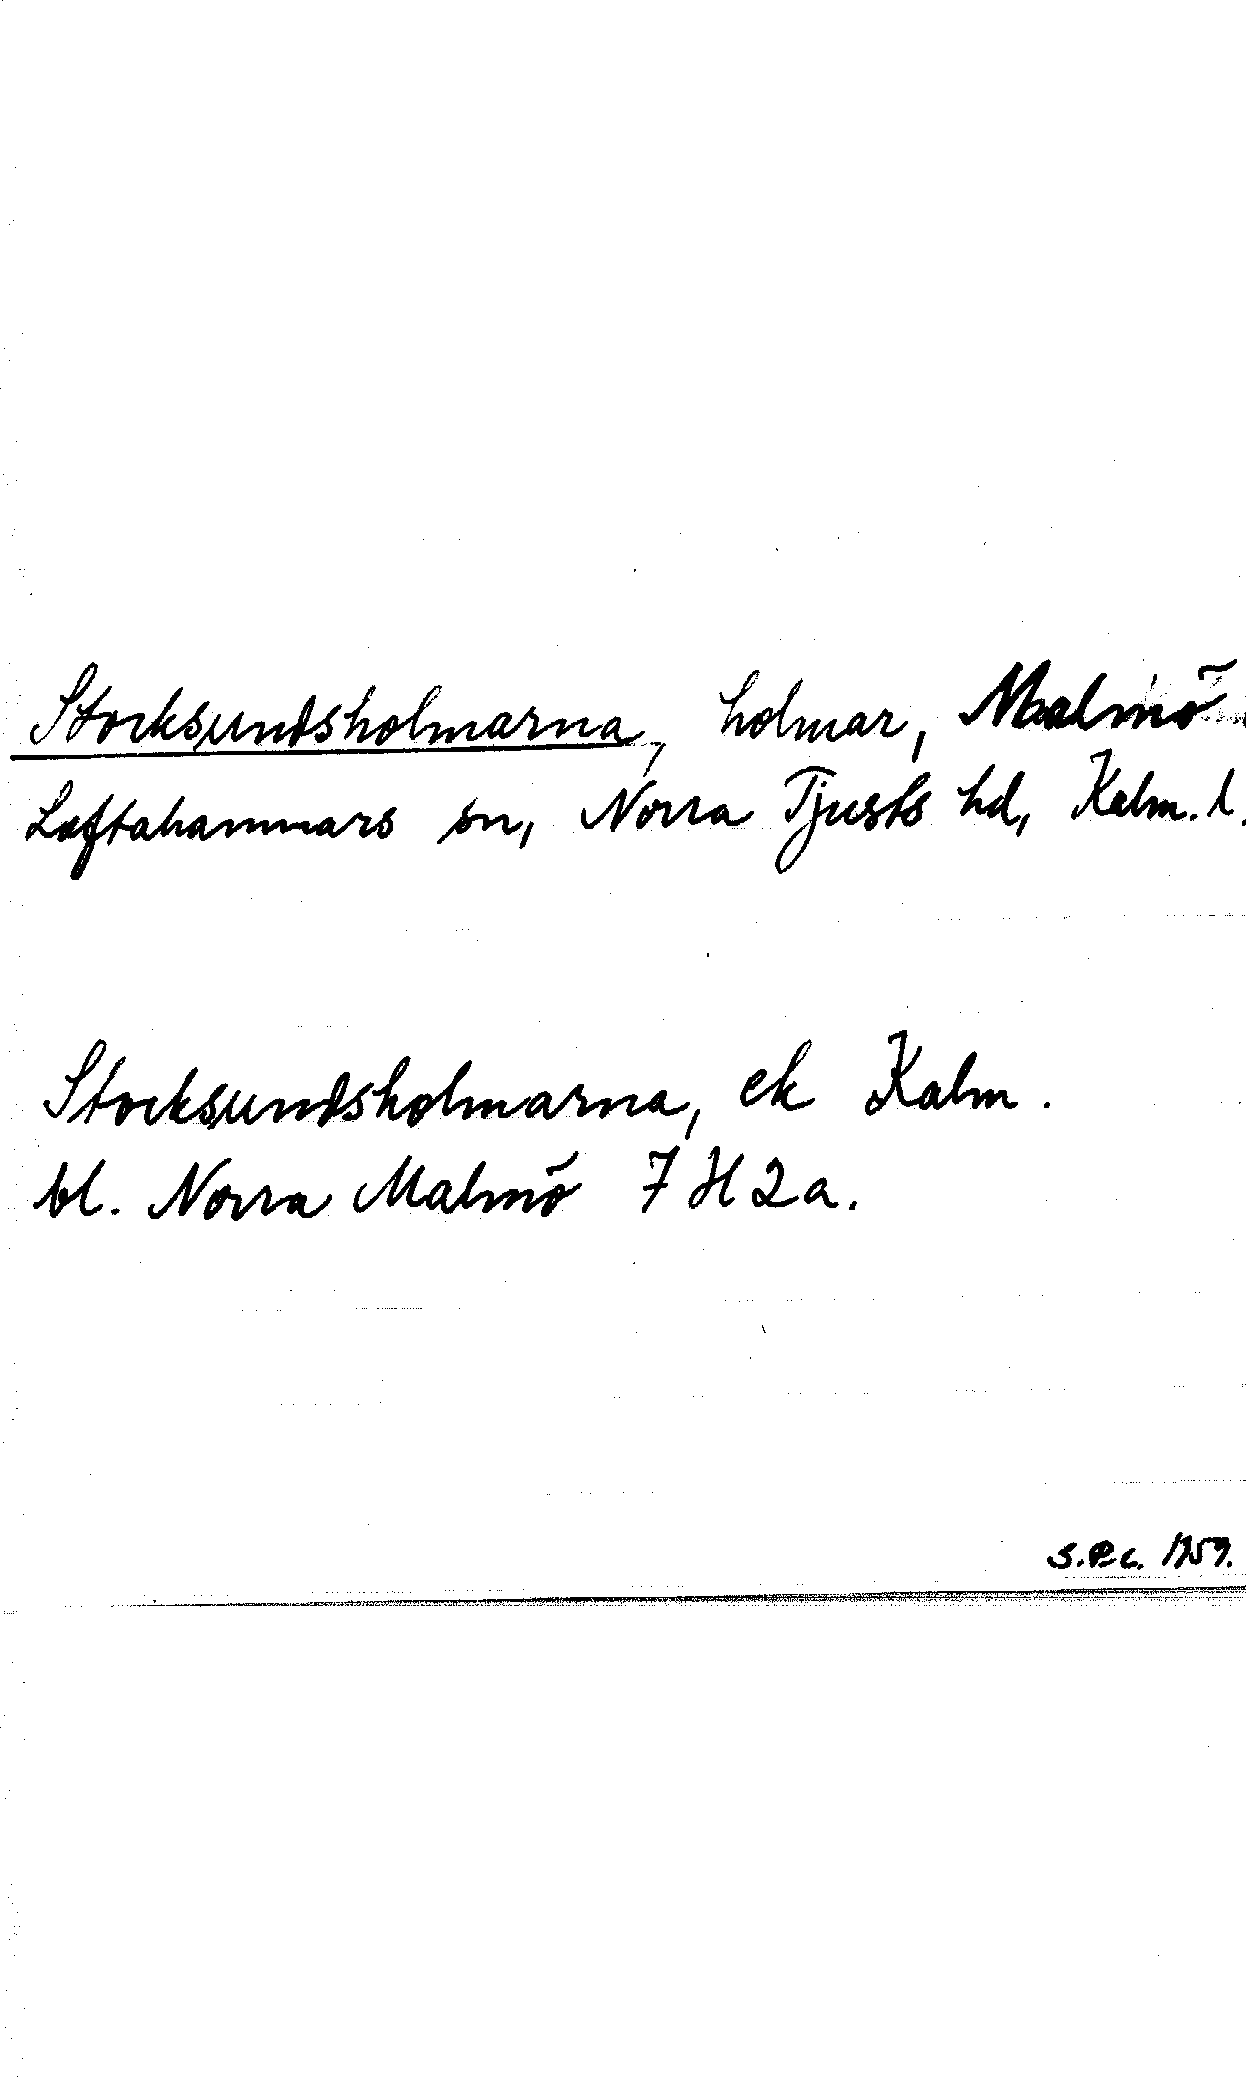 Stocksundsholmarna, holmar, Malmö
Loftahammars sn, Norra Tjusts hd, Kalm. l.
Stocksundsholmarna, ek Kalm.
bl. Norra Malmö 7 H 2 a.